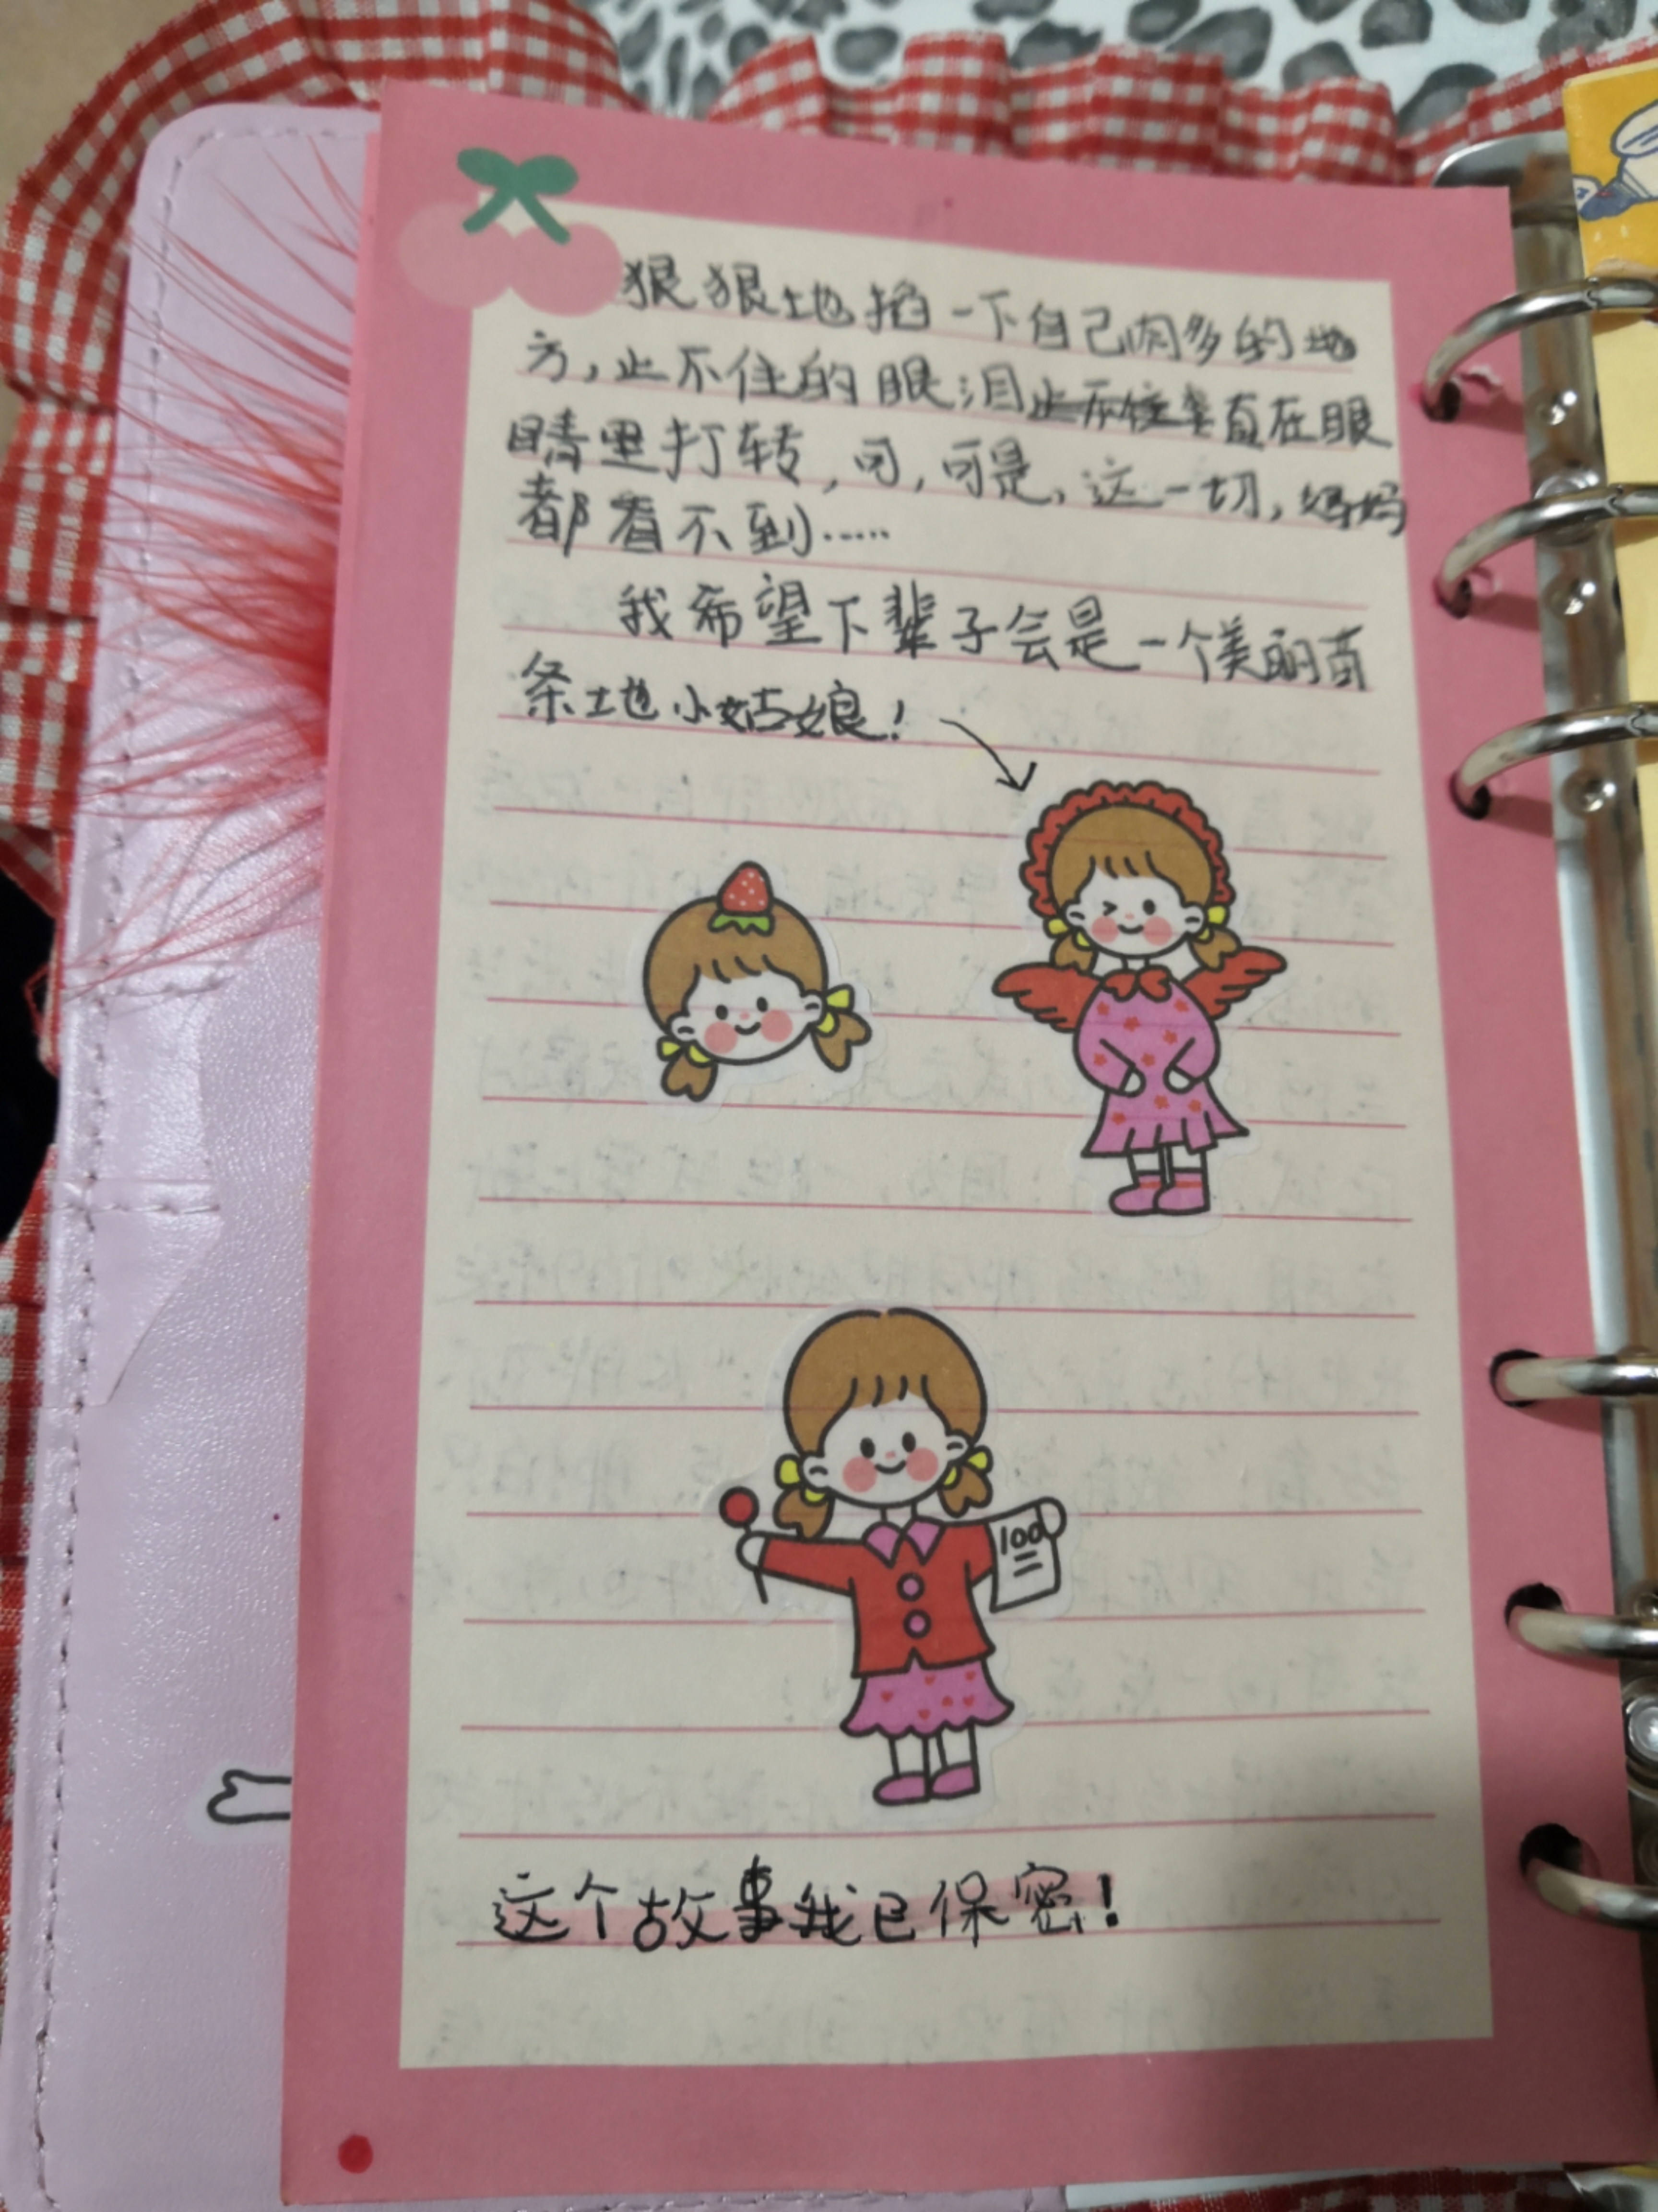 狠狠地掐一下自己肉多的地
方，止不住的眼泪止不住直在眼
睛里打转，可，可是，这一切，妈妈
都看不到……
我希望下辈子会是一个美丽苗
条地小姑娘！
100
这个故事我已保密！